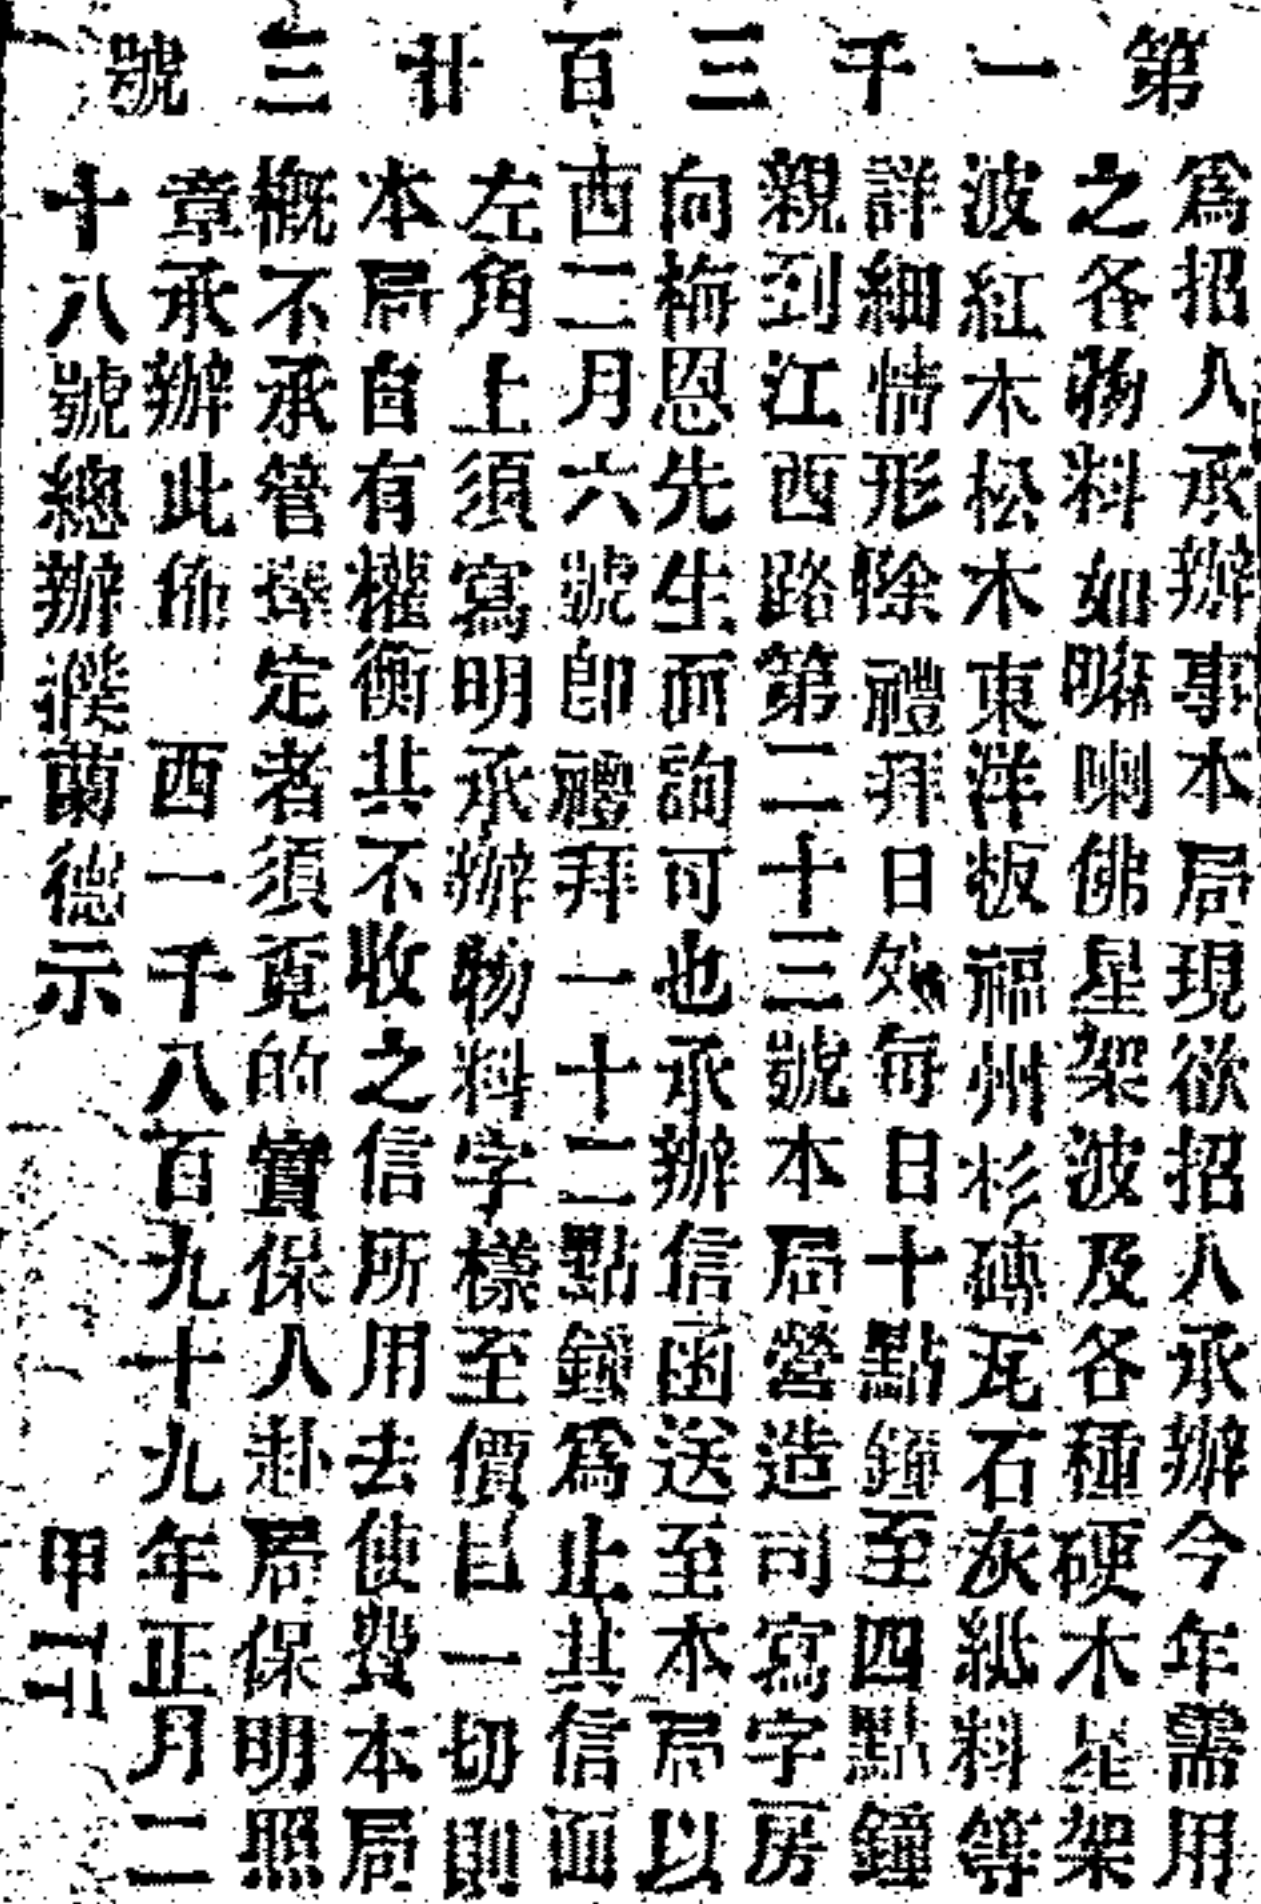 第一千三百廿三號
爲招人承辦事本局現欲招人承辦今年需用
之各物料如嘛喇佛星架波及各種硬木星架
波紅木松木東洋板福州杉磚瓦石灰紙料等
詳細情形除禮拜日外每日十點鐘至四點鐘
親到江西路第二十三號本局營造司寫字房
向梅恩先生面詢可也承辦信函送至本局以
西二月六號卽禮拜一十二點鐘爲止其信面
左角上須寫明承辦物料字樣至價目一切則
本局自有權衡其不收之信所用去使費本局
概不承管擇定者須覓的實保人赴局保明照
章承辦此佈 西一千八百九十九年正月二
十八號總辦濮蘭德示 甲